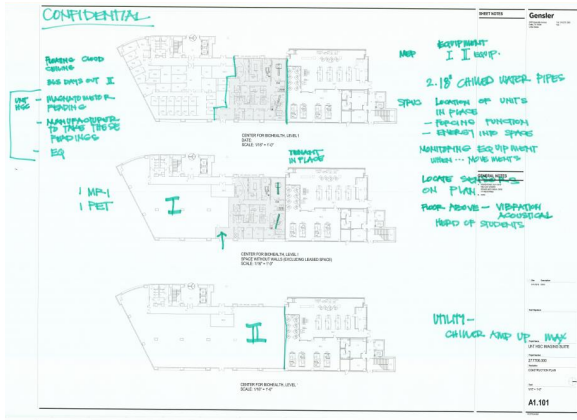 CONFIDENTIAL
FLOATING CLOUD
CEILING
BLG DAYS OUT II
UNT
HSC
- MAGNATOMETER
READING
- MANUFACTURER
TO TAKE THESE
READINGS
- EQ
1 MRI
1 PET
CENTER FOR BIOHEALTH, LEVEL 1
DATE:
SCALE: 1/16" = 1'-0"
TENANT
IN PLACE
CENTER FOR BIOHEALTH, LEVEL I
SPACE WITHOUT WALLS (EXCLUDING LEASED SPACE)
SCALE: 1/16" = 1'-0"
CENTER FOR BIOHEALTH, LEVEL
SCALE: 1/16" = 1'-0"
SHEET NOTES
Gensler
MEP
EQUIPMENT
I II EQUIP.
2.18" CHILLED WATER PIPES
STRUC
LOCATION OF UNITS
IN PLACE
- FORCING FUNCTION
- ENERGY INTO SPACE
MONITORING EQUIPMENT
WHEN ... MOVEMENTS
LOCATE SENSORS
ON PLAN
GENERAL NOTES
FLOOR ABOVE - VIBRATION
ACOUSTICAL
HERD OF STUDENTS
UTILITY -
CHILLER AMP UP MAX
UNT HSC IMAGING SUITE
CONSTRUCTION PLAN
A1.101